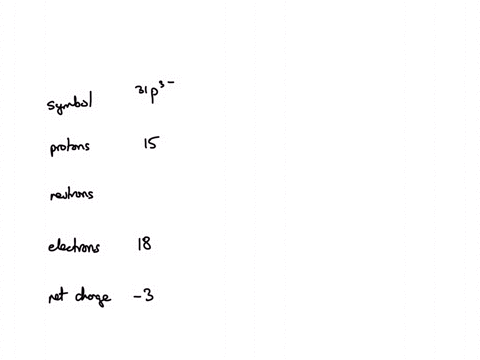 symbol ³¹p³⁻
protons 15
neutrons
electrons 18
net charge -3